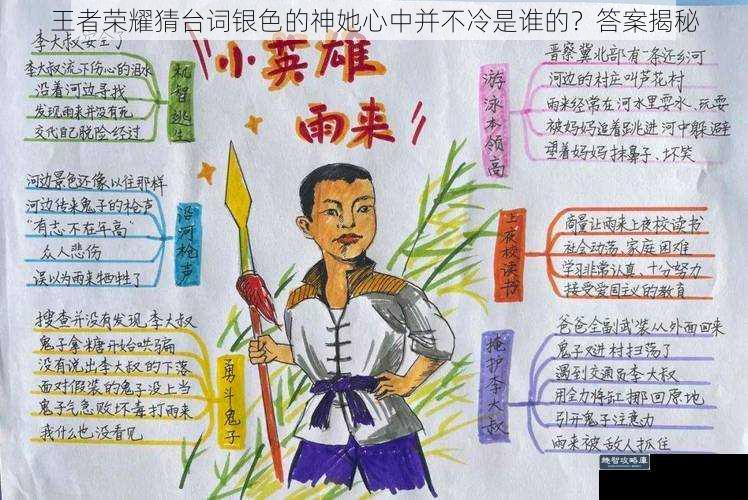 王者荣耀猜台词银色的神她心中并不冷是谁的？答案揭秘
小英雄
雨来
李大叔安全了
李大叔流下伤心的泪水
沿着河边寻找
发现雨来并没有死
交代自己脱险经过
机智逃生
河边景色还像以往那样
河边传来鬼子的枪声
"有志不在年高"
众人悲伤
误以为雨来牺牲了
沿河枪声
搜查并没有发现李大叔
鬼子拿糖开始哄骗
没有说出李大叔的下落
面对假装的鬼子没上当
鬼子气急败坏毒打雨来
我什么也没看见
勇斗鬼子
游泳本领高
晋察冀北部有一条还乡河
河边的村庄叫芦花村
雨来经常在河水里耍水、玩耍
被妈妈追着跳进河中躲避
望着妈妈抹鼻子、坏笑
上夜校读书
商量让雨来上夜校读书
社会动荡、家庭困难
学习非常认真、十分努力
接受爱国主义的教育
掩护李大叔
爸爸全副武装从外面回来
鬼子又进村扫荡了
遇到交通员李大叔
用全力将缸挪回原地
引开鬼子注意力
雨来被敌人抓住